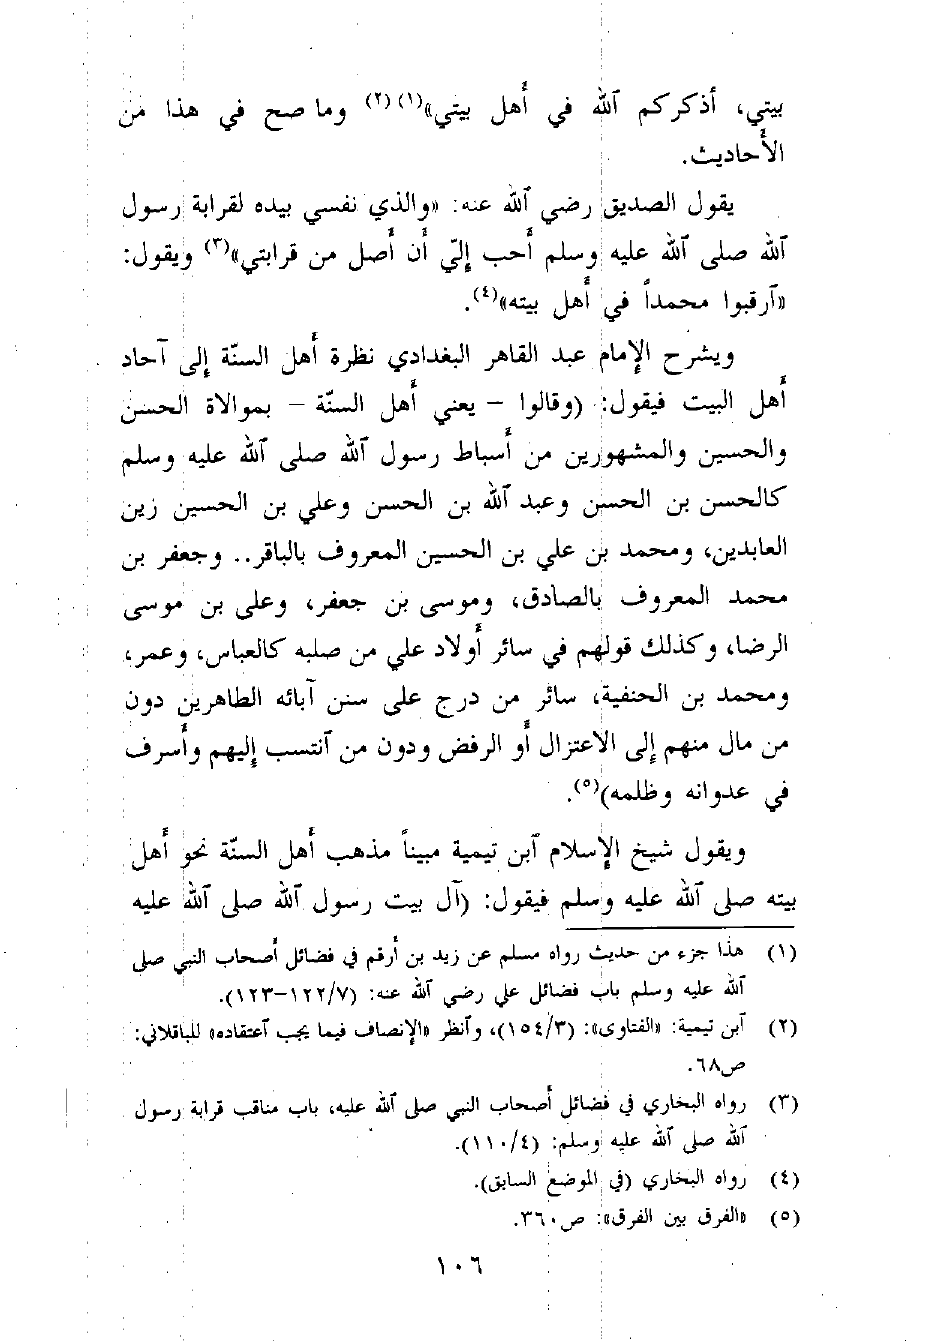 بيتي، أذكركم ٱلله في أهل بيتي»(١)(٢) وما صح في هذا من
الأحاديث.
يقول الصديق رضي ٱلله عنه: «والذي نفسي بيده لقرابة رسول
ٱلله صلى ٱلله عليه وسلم أحب إليّ أن أصل من قرابتي»(٣) ويقول:
«ٱرقبوا محمداً في أهل بيته»(٤).
ويشرح الإمام عبد القاهر البغدادي نظرة أهل السنّة إلى آحاد
أهل البيت فيقول: (وقالوا – يعني أهل السنّة – بموالاة الحسن
والحسين والمشهورين من أسباط رسول ٱلله صلى ٱلله عليه وسلم
كالحسن بن الحسن وعبد ٱلله بن الحسن وعلي بن الحسين زين
العابدين، ومحمد بن علي بن الحسين المعروف بالباقر.. وجعفر بن
محمد المعروف بالصادق، وموسى بن جعفر، وعلي بن موسى
الرضا، وكذلك قولهم في سائر أولاد علي من صلبه كالعباس، وعمر،
ومحمد بن الحنفية، سائر من درج على سنن آبائه الطاهرين دون
من مال منهم إلى الاعتزال أو الرفض ودون من ٱنتسب إليهم وأسرف
في عدوانه وظلمه)(٥).
ويقول شيخ الإسلام ٱبن تيمية مبيناً مذهب أهل السنّة نحو أهل
بيته صلى ٱلله عليه وسلم فيقول: (آل بيت رسول ٱلله صلى ٱلله عليه
(١) هذا جزء من حديث رواه مسلم عن زيد بن أرقم في فضائل أصحاب النبي صلى
ٱلله عليه وسلم باب فضائل علي رضي ٱلله عنه: (١٢٢/٧–١٢٣).
(٢) ٱبن تيمية: «الفتاوى»: (١٥٤/٣)، وٱنظر «الإنصاف فيما يجب ٱعتقاده» للباقلاني:
ص٦٨.
(٣) رواه البخاري في فضائل أصحاب النبي صلى ٱلله عليه، باب مناقب قرابة رسول
ٱلله صلى ٱلله عليه وسلم: (١١٠/٤).
(٤) رواه البخاري (في الموضع السابق).
(٥) «الفرق بين الفرق»: ص٣٦٠.
١٠٦